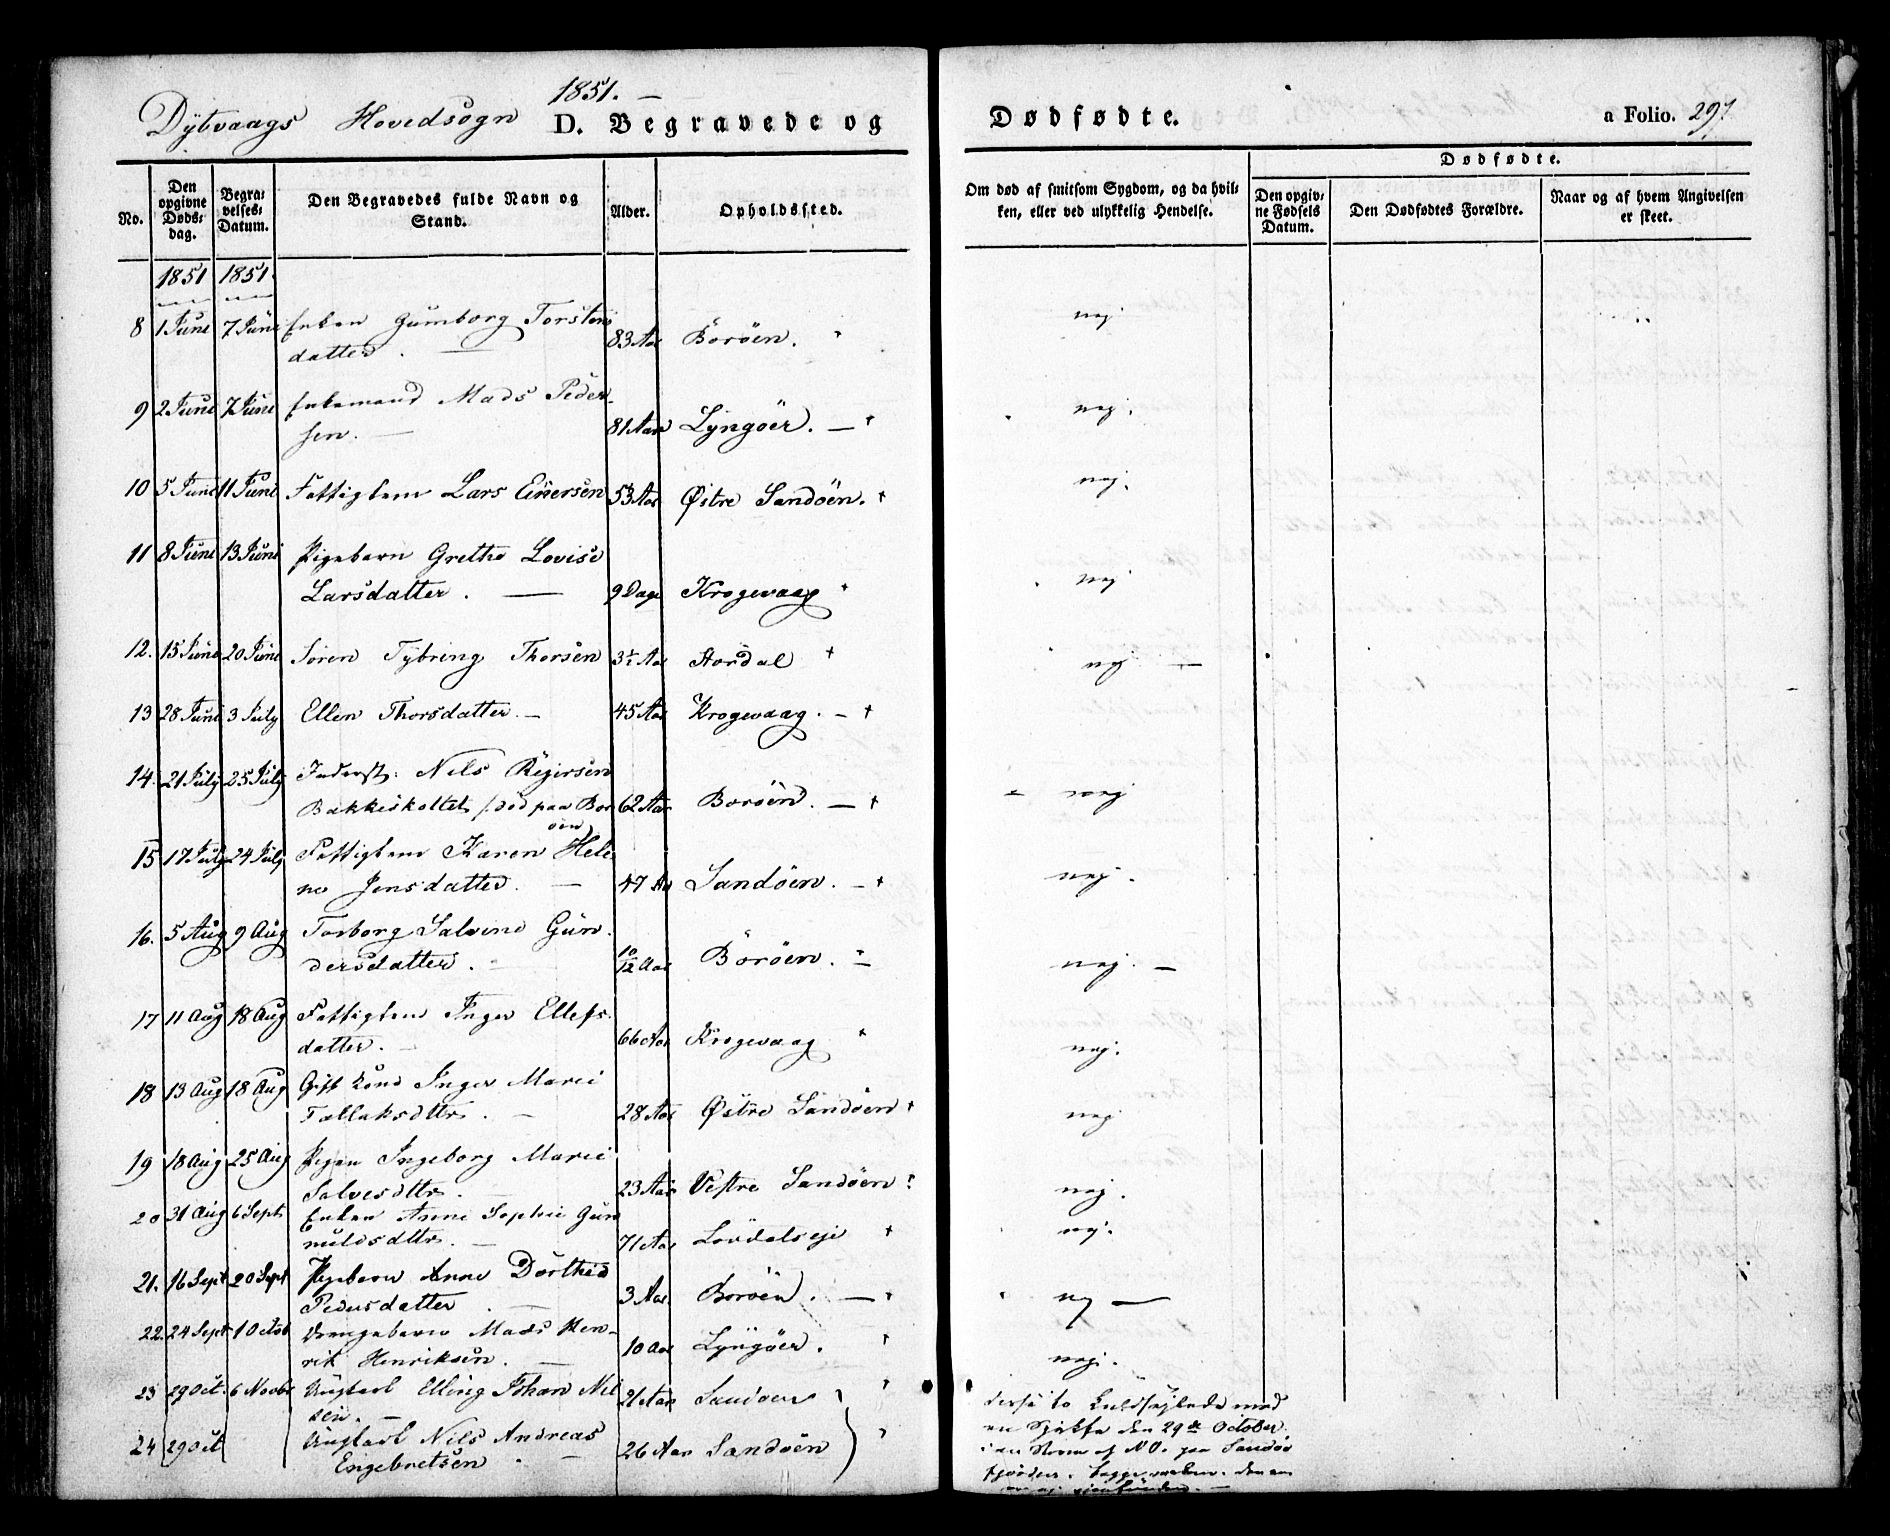 1851.
Dybvaags Hovedsogn D. Begravede og
Dødfødte.
a Folio. 297
No.
Den opgivne Døds-dag.
Begra-velses-Datum.
Den Begravedes fulde Navn og Stand.
Alder.
Opholdssted.
Om død af smitsom Sygdom, og da hvil-
ken, eller ved ulykkelig Hendelse.
Dødfødte.
Den opgiv-ne Fødsels Datum.
Den Dødfødtes Forældre.
Naar og af hvem Angivelsen er skeet.
1851 1851.
8 1 Juni 7 Juni Enken Gumborg Torstens
datter. 83 Aar Boröen. nej.
9 2 Juni 7 Juni Enkemand Mads Peder-
sen. 81 Aar Lyngöer. nej.
10 5 Juni 11 Juni Fattiglem Lars Einersen 53 Aar Østre Sandöen. nej.
11 8 Juni 13 Juni Pigebarn Grethe Lovise
Larsdatter. 9 Dage Krogevaag nej.
12. 15 Juni 20 Juni Sören Tybring Thorsen Aar nej
13 28 Juni 3 July Ellen Thorsdatter. 45 Aar Krogevaag.
14. 21 July 25 July Inderst: Nels
Bakkeskottet /:död paa Bor
öen 62 Aar Boröen. nej
15 17 July 24 July Fattiglem Karen Hele
ne Jensdatter. 47 Aar Sandöen. nej.
16. 5 Aug 9 Aug Torborg Salvine Gun
dersdatter. 10/12 Aar Boröen. nej.
17 11 Aug 18 Aug Fattiglem Inger Ellefs
datter. 66 Aar Krogevaag nej.
18 13 Aug 18 Aug Gift Kone Inger Marie
Tallaksdttr. 28 Aar Østre Sandöen nej
19 18 Aug 25 Aug Pigen Ingeborg Marie
Salvesdttr. 23 Aar Vestre Sandöen nej.
20 31 Aug 6 Sept Enken Anne Sophie Gun
nuldsdttr. 71 Aar nej.
21. 16 Sept 20 Sept Pigebarn Anne Dorthea
Pedersdatter. 3 Aar Boröen. nej
22. 24 Sept 1 Octob Drengebarn Mads Hen-
rik Henriksen. 10 Aar Lyngöer. nej.
23 29 Oct. 6 Novbr Ungkarl Elling Johan Nil
sen. 21 Aar Sandöen
24 29 Oct Ungkarl Nils Andreas
Engebretsen. 26 Aar Sandöen
disse to kuldsejlede med
en den 29de October
i en Storm af N.O. paa Sandö
fjorden. begge